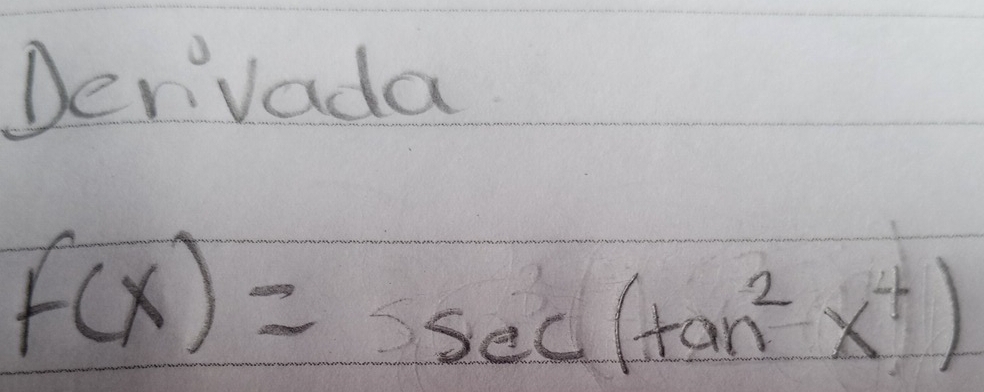 Derivada
f(x) = sec(tan² x⁴)